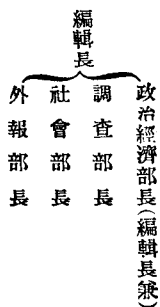 編輯長
政治經濟部長(編輯長兼)
調査部長
社會部長
外報部長